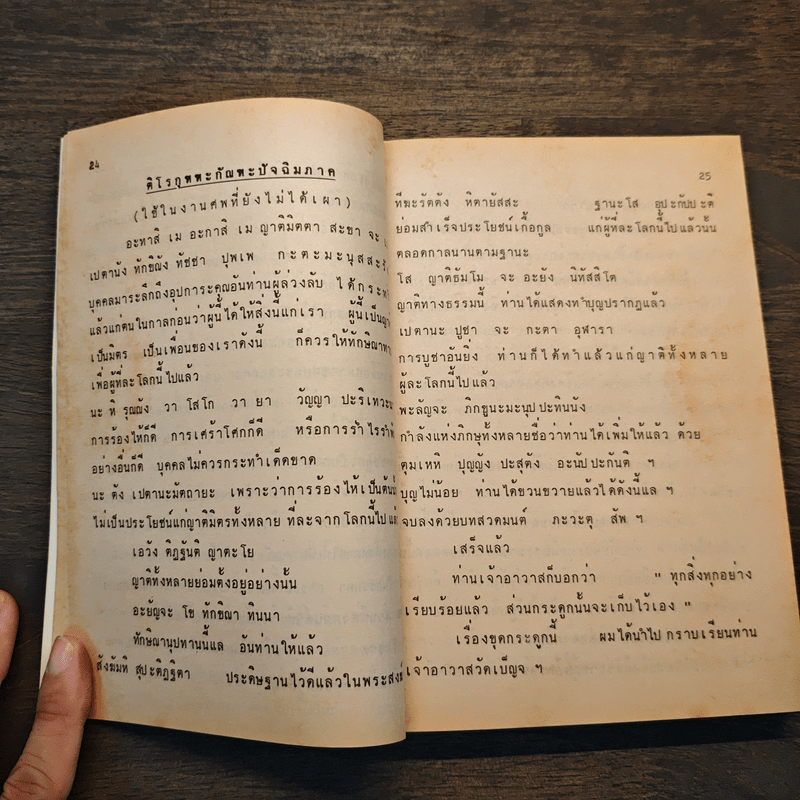 24
ติโรกุฑฑะกัณฑะปัจฉิมภาค
(ใช้ในงานศพที่ยังไม่ได้เผา)
อะทาสิ เม อะกาสิ เม ญาติมิตตา สะขา จะ
เปตานัง ทักขิณัง ทัชชา ปุพเพ กะตะมะนุสสะรั
บุคคลมาระลึกถึงอุปการะคุณอันท่านผู้ล่วงลับ ได้กระทำ
แล้วแก่ตนในกาลก่อนว่าผู้นี้ได้ให้สิ่งนี้แก่เรา ผู้นี้เป็นญา
เป็นมิตร เป็นเพื่อนของเราดังนี้ ก็ควรให้ทักษิณาทา
เพื่อผู้ที่ละโลกนี้ไปแล้ว
นะ หิ รุณณัง วา โสโก วา ยา วัญญา ปะริเทวะนา
การร้องไห้ก็ดี การเศร้าโศกก็ดี หรือการร่ำไรรำพั
อย่างอื่นก็ดี บุคคลไม่ควรกระทำเด็ดขาด
นะ ตัง เปตานะมัตถายะ เพราะว่าการร้องไห้เป็นต้นนั้
ไม่เป็นประโยชน์แก่ญาติมิตรทั้งหลาย ที่ละจากโลกนี้ไป แล้
เอวัง ติฏฐันติ ญาตะโย
ญาติทั้งหลายย่อมตั้งอยู่อย่างนั้น
อะยัญจะ โข ทักขิณา ทินนา
ทักษิณานุปทานนี้แล อันท่านให้แล้ว
สังฆัมหิ สุปะติฏฐิตา ประดิษฐานไว้ดีแล้วในพระสงฆ์
25
ทีฆะรัตตัง หิตายัสสะ ฐานะโส อุปะกัปปะติ
ย่อมสำเร็จประโยชน์เกื้อกูล แก่ผู้ที่ละโลกนี้ไปแล้วนั้น
ตลอดกาลนานตามฐานะ
โส ญาติธัมโม จะ อะยัง นิทัสสิโต
ญาติทางธรรมนี้ ท่านได้แสดงทำบุญปรากฏแล้ว
เปตานะ ปูชา จะ กะตา อุฬารา
การบูชาอันยิ่ง ท่านก็ได้ทำแล้วแก่ญาติทั้งหลาย
ผู้ละโลกนี้ไปแล้ว
พะลัญจะ ภิกขูนะมะนุปปะทินนัง
กำลังแห่งภิกษุทั้งหลายชื่อว่าท่านได้เพิ่มให้แล้ว ด้วย
ตุมเหหิ ปุญญัง ปะสุตัง อะนัปปะกันติ ฯ
บุญไม่น้อย ท่านได้ขวนขวายแล้วได้ดังนี้แล ฯ
จบลงด้วยบทสวดมนต์ ภะวะตุ สัพ ฯ
เสร็จแล้ว
ท่านเจ้าอาวาสก็บอกว่า " ทุกสิ่งทุกอย่าง
เรียบร้อยแล้ว ส่วนกระดูกนั้นจะเก็บไว้เอง "
เรื่องขุดกระดูกนี้ ผมได้นำไป กราบเรียนท่าน
เจ้าอาวาสวัดเบ็ญจ ฯ